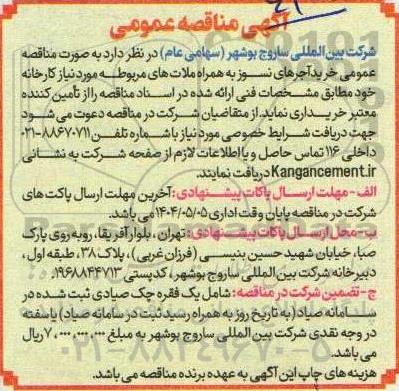 آگهی مناقصه عمومی
شرکت بین‌المللی ساروج بوشهر (سهامی عام) در نظر دارد به صورت مناقصه
عمومی خرید آجرهای نسوز به همراه ملات های مربوطه مورد نیاز کارخانه
خود مطابق مشخصات فنی ارائه شده در اسناد مناقصه را از تأمین کننده
معتبر خریداری نماید. از متقاضیان شرکت در مناقصه دعوت می شود
جهت دریافت شرایط خصوصی مورد نیاز با شماره تلفن ۸۸۶۷۰۷۱۱-۰۲۱
داخلی ۱۱۶ تماس حاصل و یا اطلاعات لازم از صفحه شرکت به نشانی
Kangancement.ir دریافت نمایند.
الف - مهلت ارسال پاکات پیشنهادی: آخرین مهلت ارسال پاکت های
شرکت در مناقصه پایان وقت اداری ۱۴۰۴/۰۵/۰۵ می باشد.
ب- محل ارسال پاکات پیشنهادی: تهران، بلوار آفریقا، روبه روی پارک
صبا، خیابان شهید حسین بنیسی (فرزان غربی)، پلاک ۳۸، طبقه اول،
دبیرخانه شرکت بین المللی ساروج بوشهر، کدپستی ۱۹۶۸۸۴۴۷۱۳.
ج- تضمین شرکت در مناقصه: شامل یک فقره چک صیادی ثبت شده در
سامانه صیاد (به تاریخ روز به همراه رسید ثبت در سامانه صیاد) یا سفته
در وجه نقدی شرکت بین المللی ساروج بوشهر به مبلغ ۷,۰۰۰,۰۰۰,۰۰۰ ریال
می باشد.
هزینه های چاپ این آگهی به عهده برنده مناقصه می باشد.